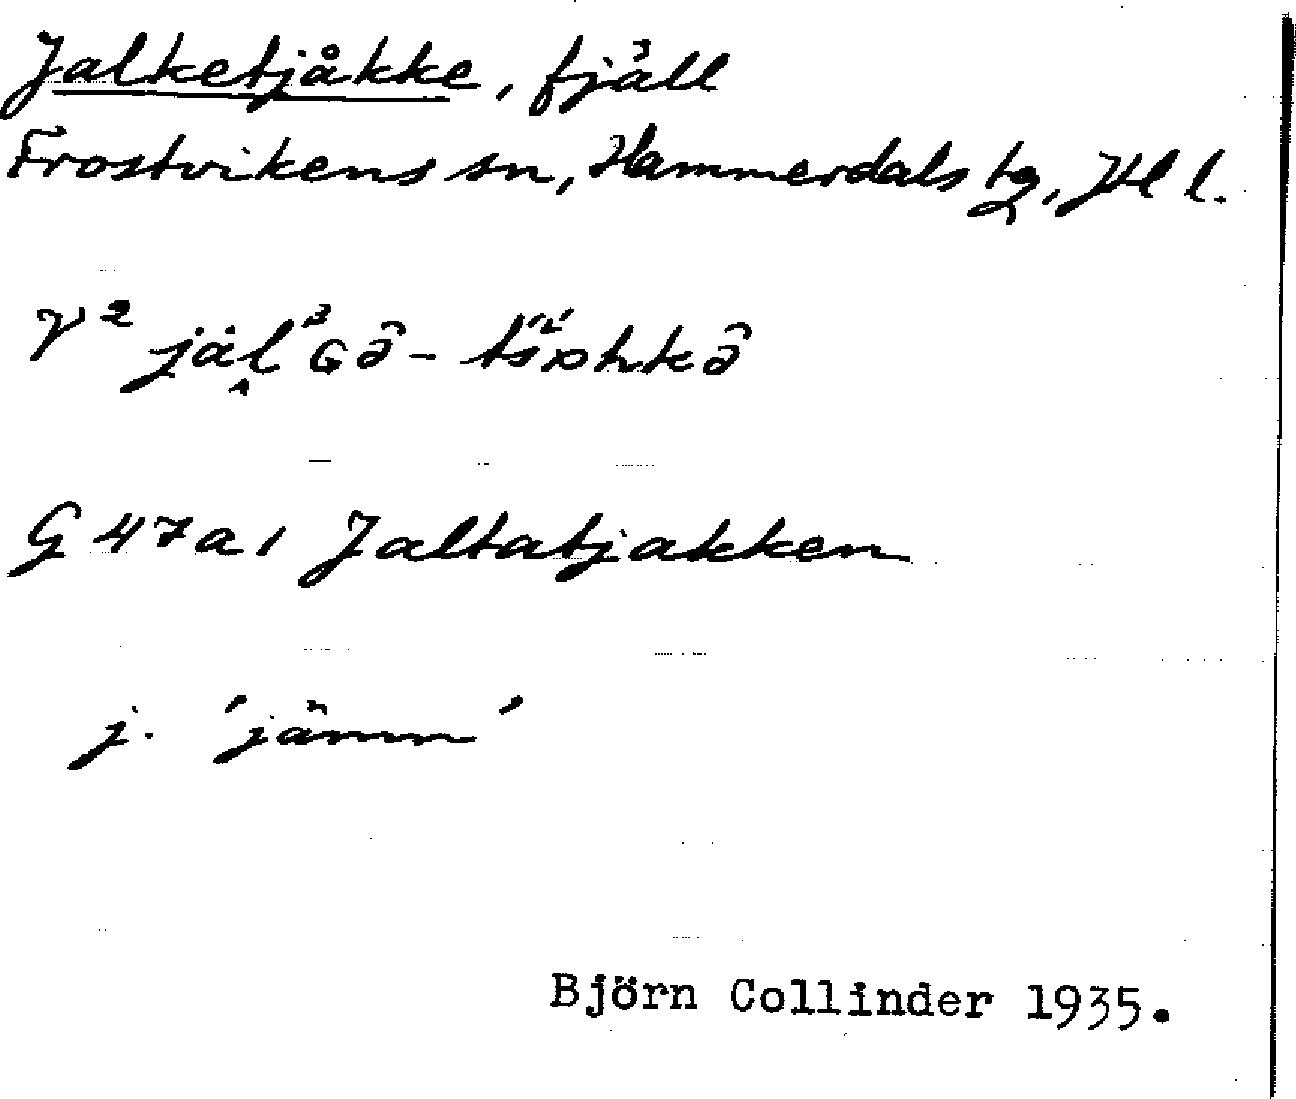 Jalketjåkke, fjäll
Frostvikens sn, Hammerdals tg, Jtl l.
G 47a1 Jaltatjakken
j. 'jämn'
Björn Collinder 1935.